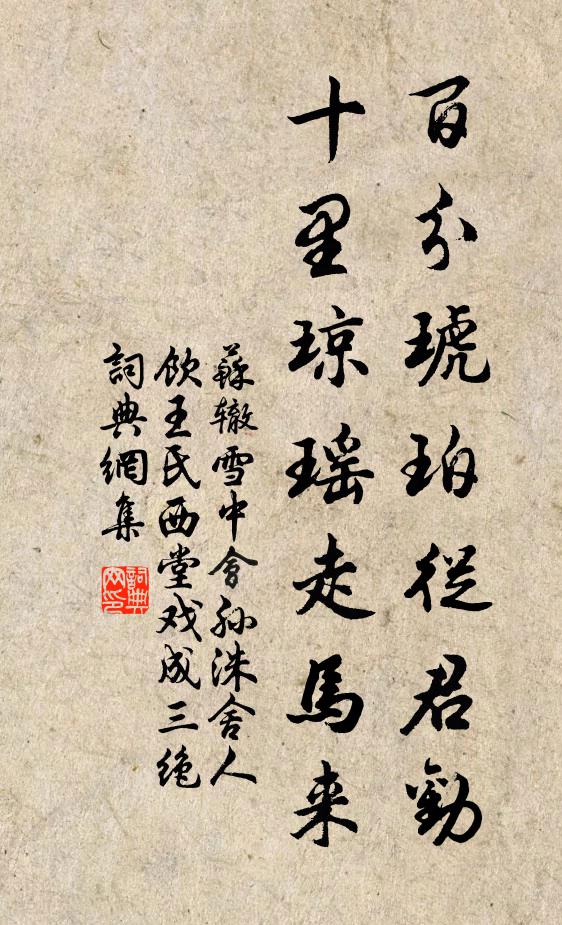 百分琥珀從君勸
十里琼瑶走馬来
蘇辙雪中會孙洙舍人
饮王氏西堂戏成三绝
詞典網集
詞典
网印